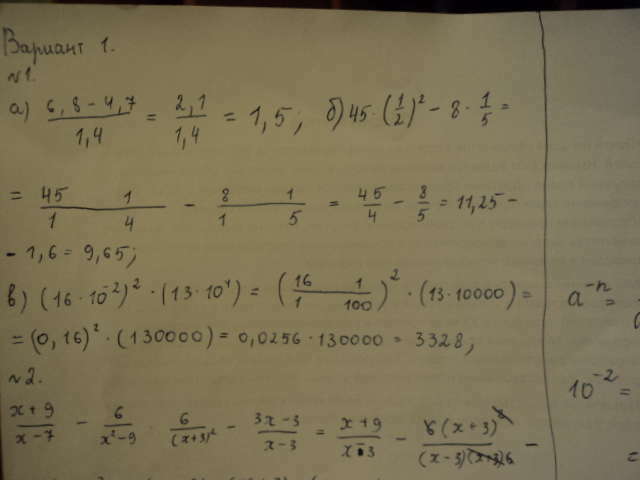 Вариант 1.
№1.
а) (6,8-4,7)/1,4 = 2,1/1,4 = 1,5; б) 45·(1/2)² - 8·1/5 =
= (45 1)/(1 4) - (8 1)/(1 5) = 45/4 - 8/5 = 11,25 -
- 1,6 = 9,65;
в) (16·10⁻²)²·(13·10⁴) = ((16 1)/(1 100))²·(13·10000) =
= (0,16)²·(130000) = 0,0256·130000 = 3328;
№2.
(x+9)/(x-7) - 6/(x²-9) · 6/(x+3)² - (3x-3)/(x-3) = (x+9)/(x-3) - 6(x+3)/(x-3) -
a⁻ⁿ =
10⁻² =
=